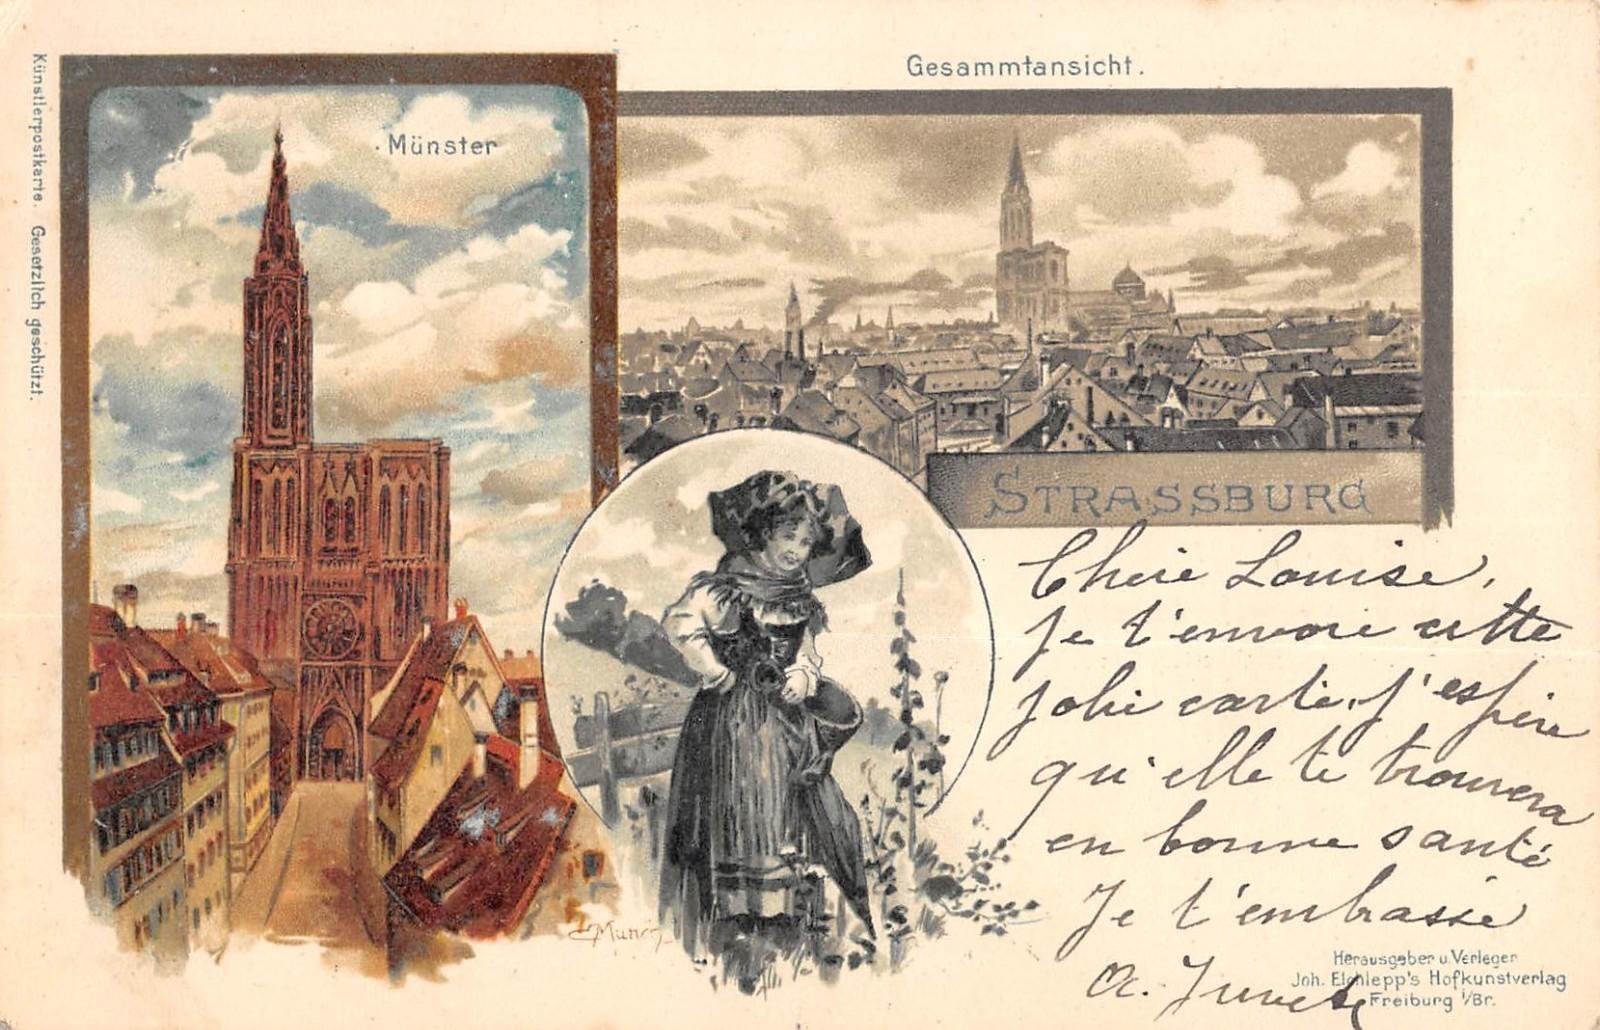 Künstlerpostkarte. Gesetzlich geschützt.
Münster
Gesammtansicht.
STRASSBURG
Chère Louise,
Je t'envoie cette
jolie carte, j'espère
qu'elle te trouvera
en bonne santé
Je t'embrasse
A.
Herausgeber u. Verleger
Joh. Elchlepp's Hofkunstverlag
Freiburg i/Br.